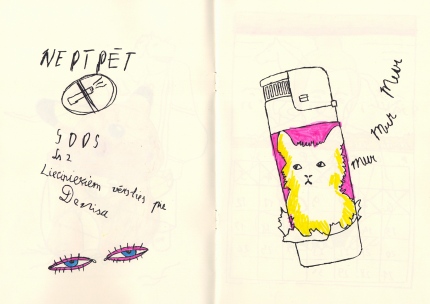 NEPĪPĒT
SODS
Ls 2
Liecniekiem vērsties pie
Denisa
mur
mur
mur